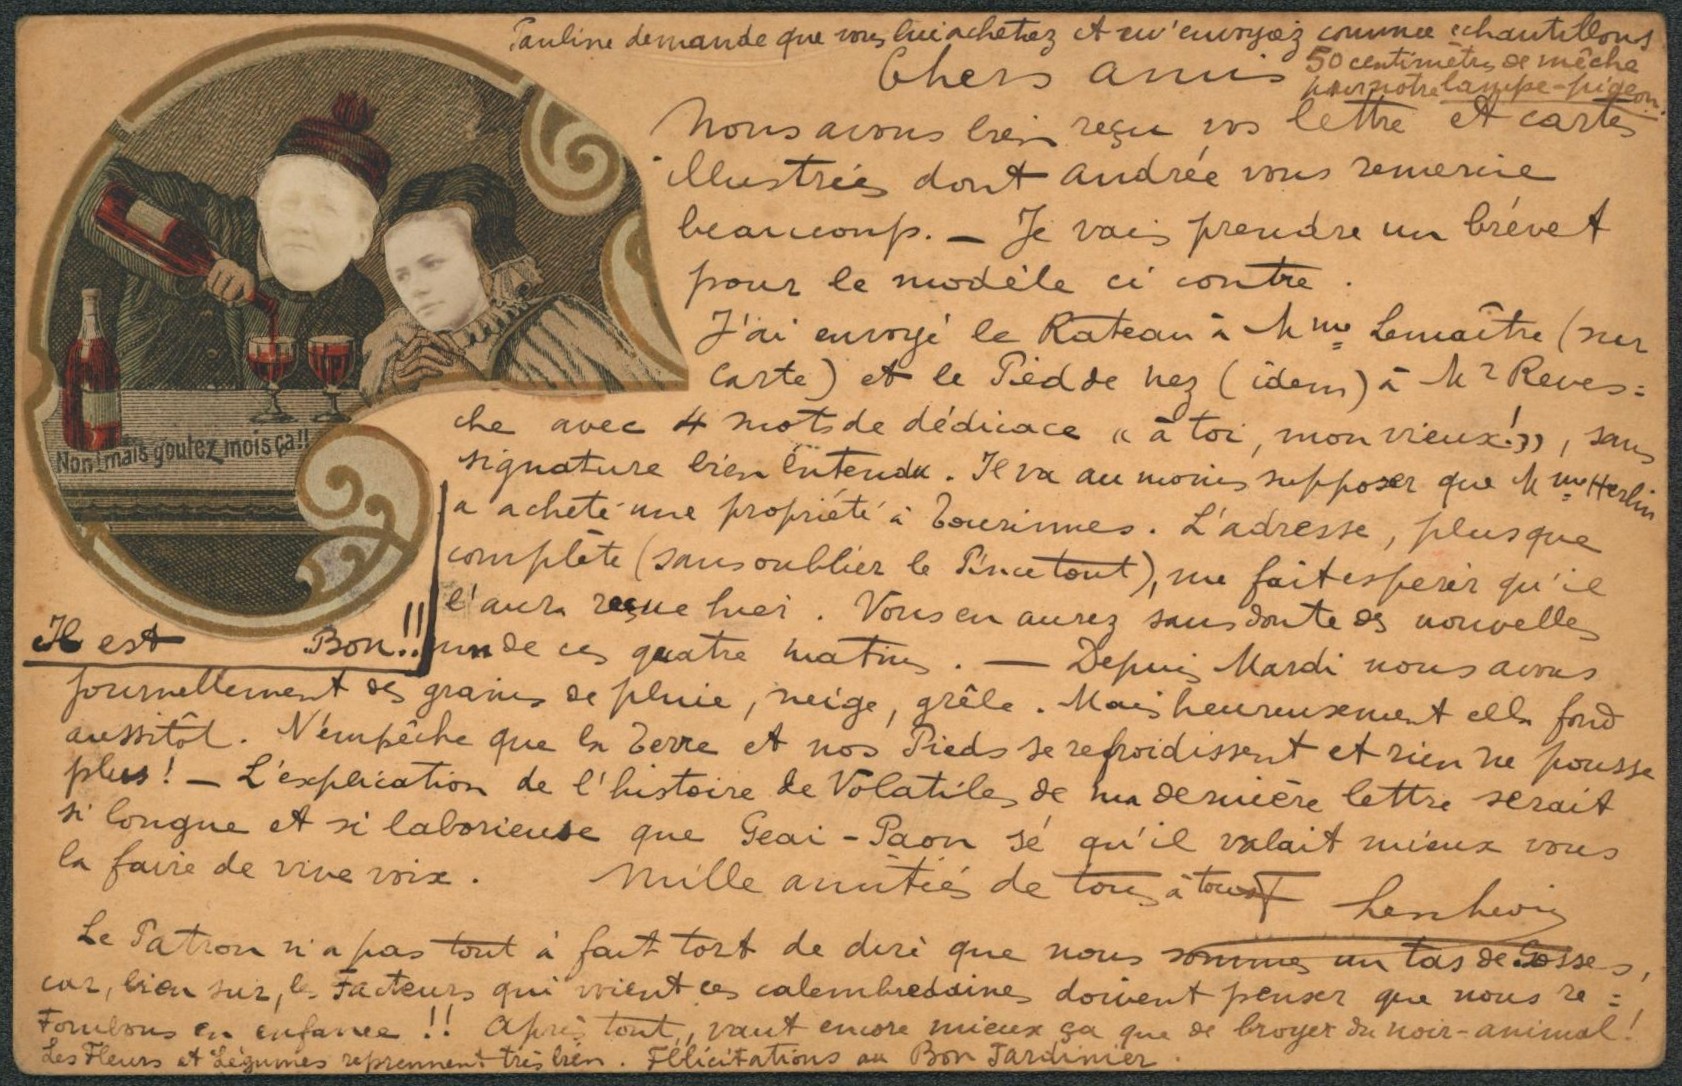 Pauline demande que vous lui achetiez et m'envoyez comme echantillons
50 centimètres de mêche
pour notre lampe-pigeon.
Chers amis
Nous avons bien reçu vos lettre et cartes
illustrées dont Andrée vous remercie
beaucoup. — Je vais prendre un brévet
pour le modèle ci contre.
J'ai envoyé le Rateau à Mme Lemaître (sur
carte) et le Pied de nez (idem) à Mr Reves=
che avec 4 mots de dédicace « à toi, mon vieux! », sans
signature bien entendu. Il va au moins supposer que Mme Herlin
a acheté une propriété à Tourinnes. L'adresse, plus que
complète (sans oublier le Pince tout), me fait espérer qu'il
l'aura reçue hier. Vous en aurez sans doute des nouvelles
un de ces quatre matins. — Depuis Mardi nous avons
journellement des grains de pluie, neige, grêle. Mais heureusement elle fond
aussitôt. N'empêche que la Terre et nos Pieds se refroidissent et rien ne pousse
plus! — L'explication de l'histoire de Volatiles de ma dernière lettre serait
si longue et si laborieuse que Geai-Paon sé qu'il valait mieux vous
la faire de vive voix. Mille amitiés de tous à tous
Non! mais goutez mois ça!!
Il est Bon!!
Le Patron n'a pas tout à fait tort de dire que nous sommes un tas de Gosses,
car, bien sur, les Facteurs qui voient ces calembredaines doivent penser que nous re=
tombons en enfance!! Après tout, vaut encore mieux ça que de broyer du noir-animal!
Les Fleurs et Légumes reprennent très bien. Félicitations au Bon Jardinier.